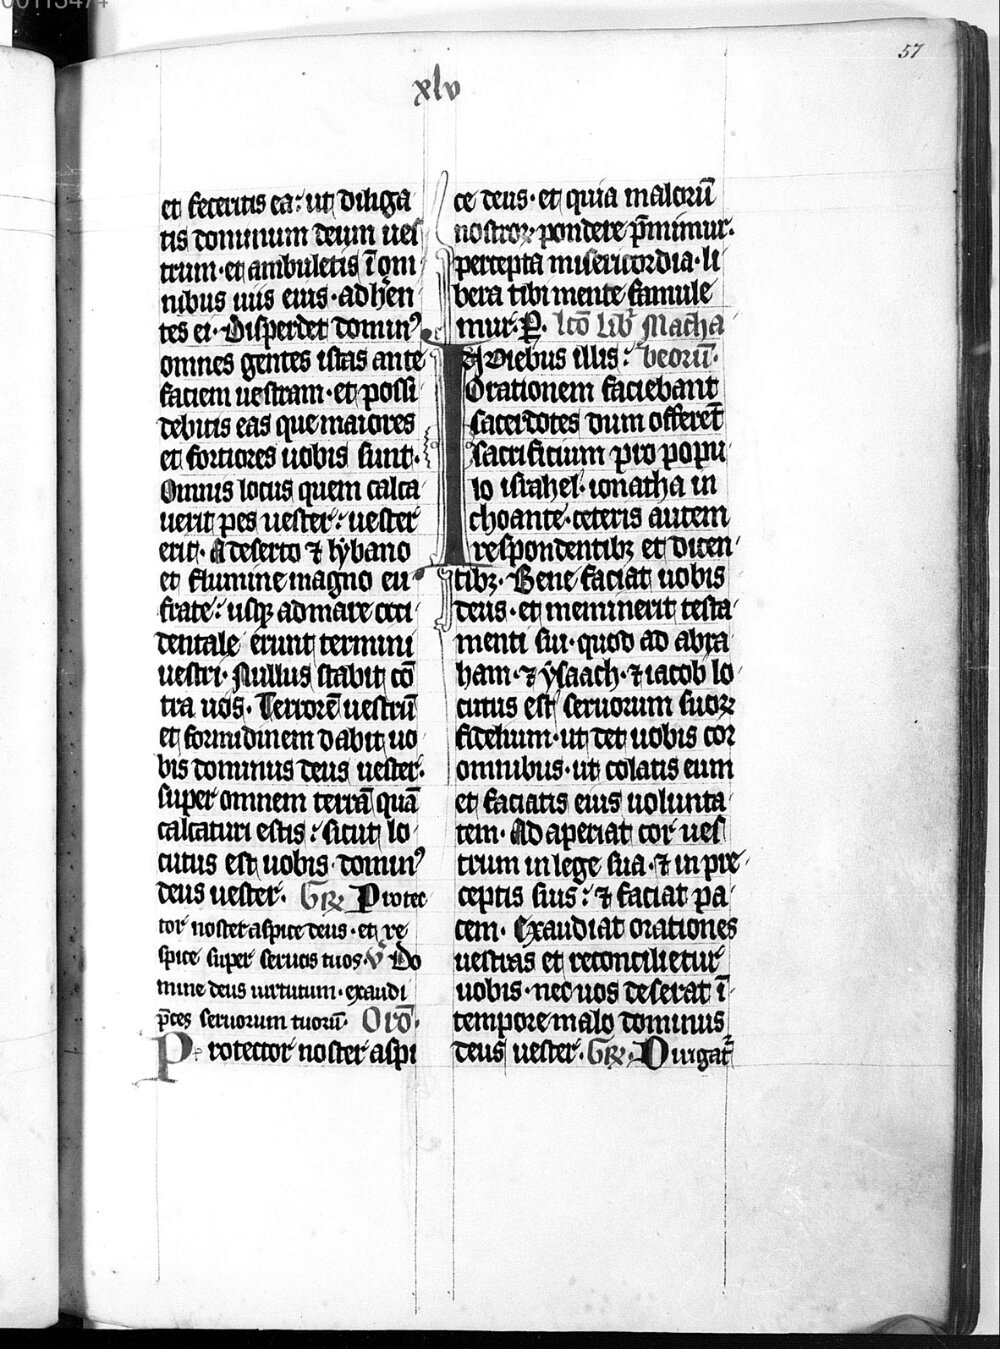 00113474
57
xlv
et feceritis ea: ut diliga
tis dominum deum ues
trum · et ambuletis ī om
nibus uiis eius · adhen
tes ei · Disperdet dominꝰ
omnes gentes istas ante
faciem uestram · et possi
debitis eas que maiores
et fortiores uobis sunt ·
Omnis locus quem calca
uerit pes uester: uester
erit · A deserto ⁊ lybano
et flumine magno eu
frate: usqꝫ ad mare occi
dentale erunt termini
uestri · Nullus stabit cō
tra uos · Terrorē uestrū
et formidinem dabit uo
bis dominus deus uester ·
super omnem terrā quā
calcaturi estis: sicut lo
cutus est uobis · dominꝰ
deus uester · Gꝶ Protec
tor noster aspice deus · et re
spice super seruos tuos · V̄ Do
mine deus uirtutum · exaudi
p̄ces seruorum tuorū · Orō ·
Protector noster aspi
ce deus · et quia malorū
nostroꝝ pondere p̄mimur ·
percepta misericordia · li
bera tibi mente famule
mur · P · lcō lib̄ Macha
In diebus illis: beorū ·
Orationem faciebant
sacerdotes dum offeret̄
sacrificium pro popu
lo israhel · ionatha in
choante · ceteris autem
respondentibꝫ et dicen
tibꝫ · Bene faciat uobis
deus · et meminerit testa
menti sui · quod ad abra
ham · ⁊ ysaach · ⁊ iacob lo
cutus est seruorum suoꝝ
fidelium · ut det uobis cor
omnibus · ut colatis eum
et faciatis eius uolunta
tem · Adaperiat cor ues
trum in lege sua · ⁊ in pre
ceptis suis: ⁊ faciat pa
cem · Exaudiat orationes
uestras et reconcilietur
uobis · nec uos deserat ī
tempore malo dominus
deus uester · Gꝶ · Dirigat̄